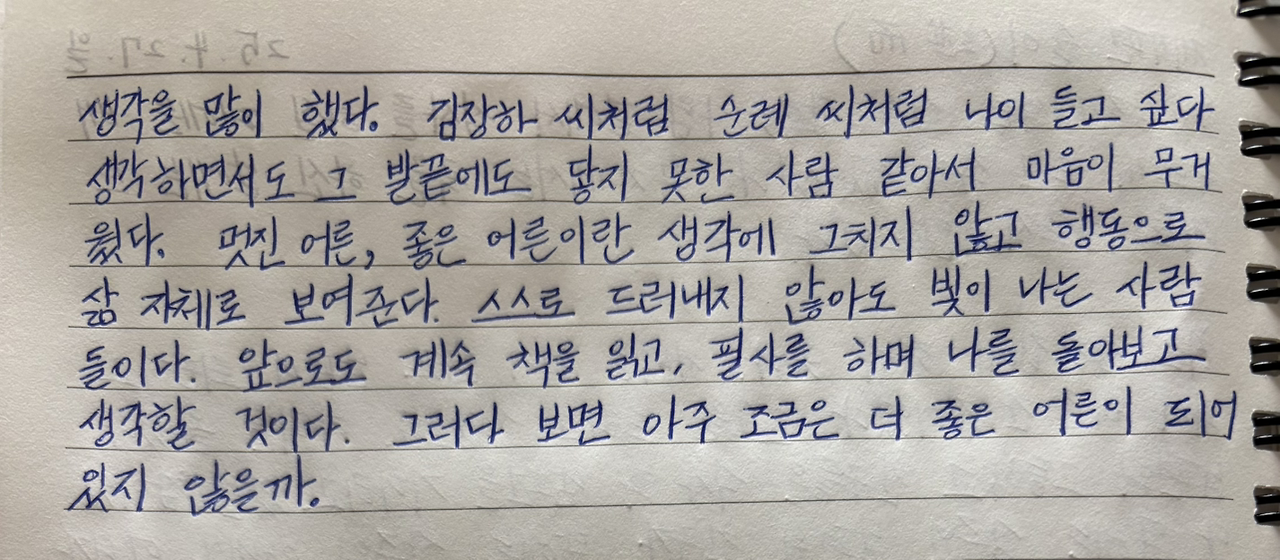 생각을 많이 했다. 김장하 씨처럼 순례 씨처럼 나이 들고 싶다
생각하면서도 그 발끝에도 닿지 못한 사람 같아서 마음이 무거
웠다. 멋진 어른, 좋은 어른이란 생각에 그치지 않고 행동으로
삶 자체로 보여준다. 스스로 드러내지 않아도 빛이 나는 사람
들이다. 앞으로도 계속 책을 읽고, 필사를 하며 나를 돌아보고
생각할 것이다. 그러다 보면 아주 조금은 더 좋은 어른이 되어
있지 않을까.